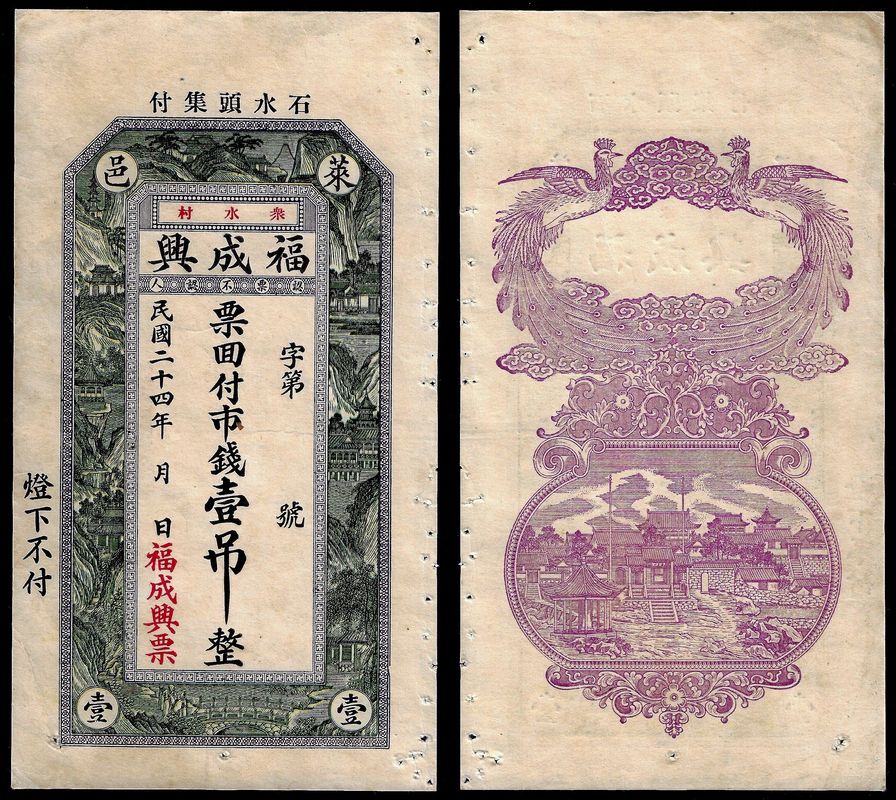 石水頭集付
萊邑
衆水村
福成興
認票不認人
字第 號
票回付市錢壹吊整
民國二十四年 月 日
福成興票
燈下不付
壹壹